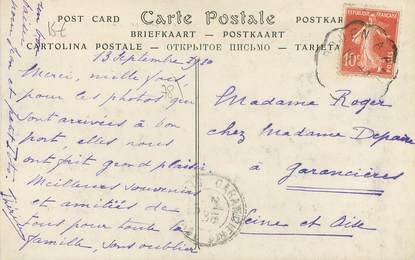 POST CARD Carte Postale POSTKARTE
BRIEFKAART — POSTKAART
CARTOLINA POSTALE — ОТКРЫТОЕ ПИСЬМО — TARJETA
13 Septembre
Merci, mille fois
pour les photos qui
sont arrivées à bon
port, elles nous
ont fait grand plaisir
Meilleures souvenirs
et amitiés de
tous pour toute la
famille, sans oublier
Madame Roger
chez Madame
à Garancières
Seine et Oise
REPUBLIQUE FRANÇAISE
10c